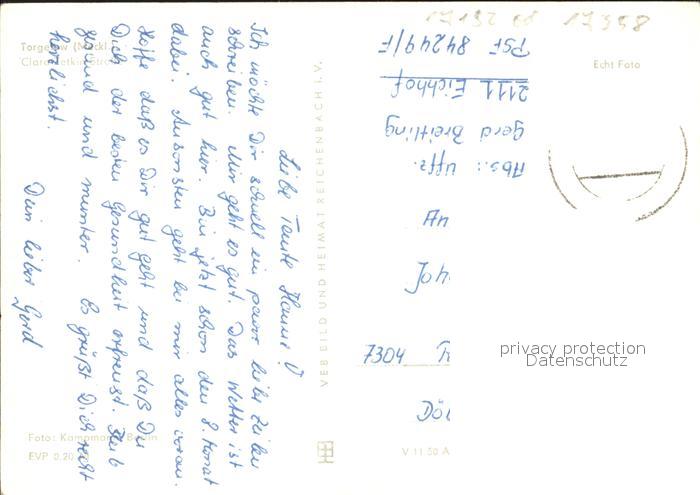 Torgelow (Meckl.)
Echt Foto
17192 17358
Liebe Tante Hanne!
Ich möchte Dir schnell ein paar liebe Zeilen
schreiben. Mir geht es gut. Das Wetter ist
auch gut hier. Bin jetzt schon den 8. Monat
dabei. Ansonsten geht bei mir alles voran.
Hoffe daß es Dir gut geht und daß Du
Dich der besten Gesundheit erfreust. Bleib
gesund und munter. Es grüßt Dich recht
herzlichst.
Dein lieber Gerd
VEB BILD UND HEIMAT REICHENBACH I. V.
Abs.: Uffz.
Gerd Breitling
2111 Eichhof
PSF 84249/F
An
Joh
7304
Dö
privacy protection
Datenschutz
Foto: Kampmann, Berlin
EVP 0,20
V 11 50 A